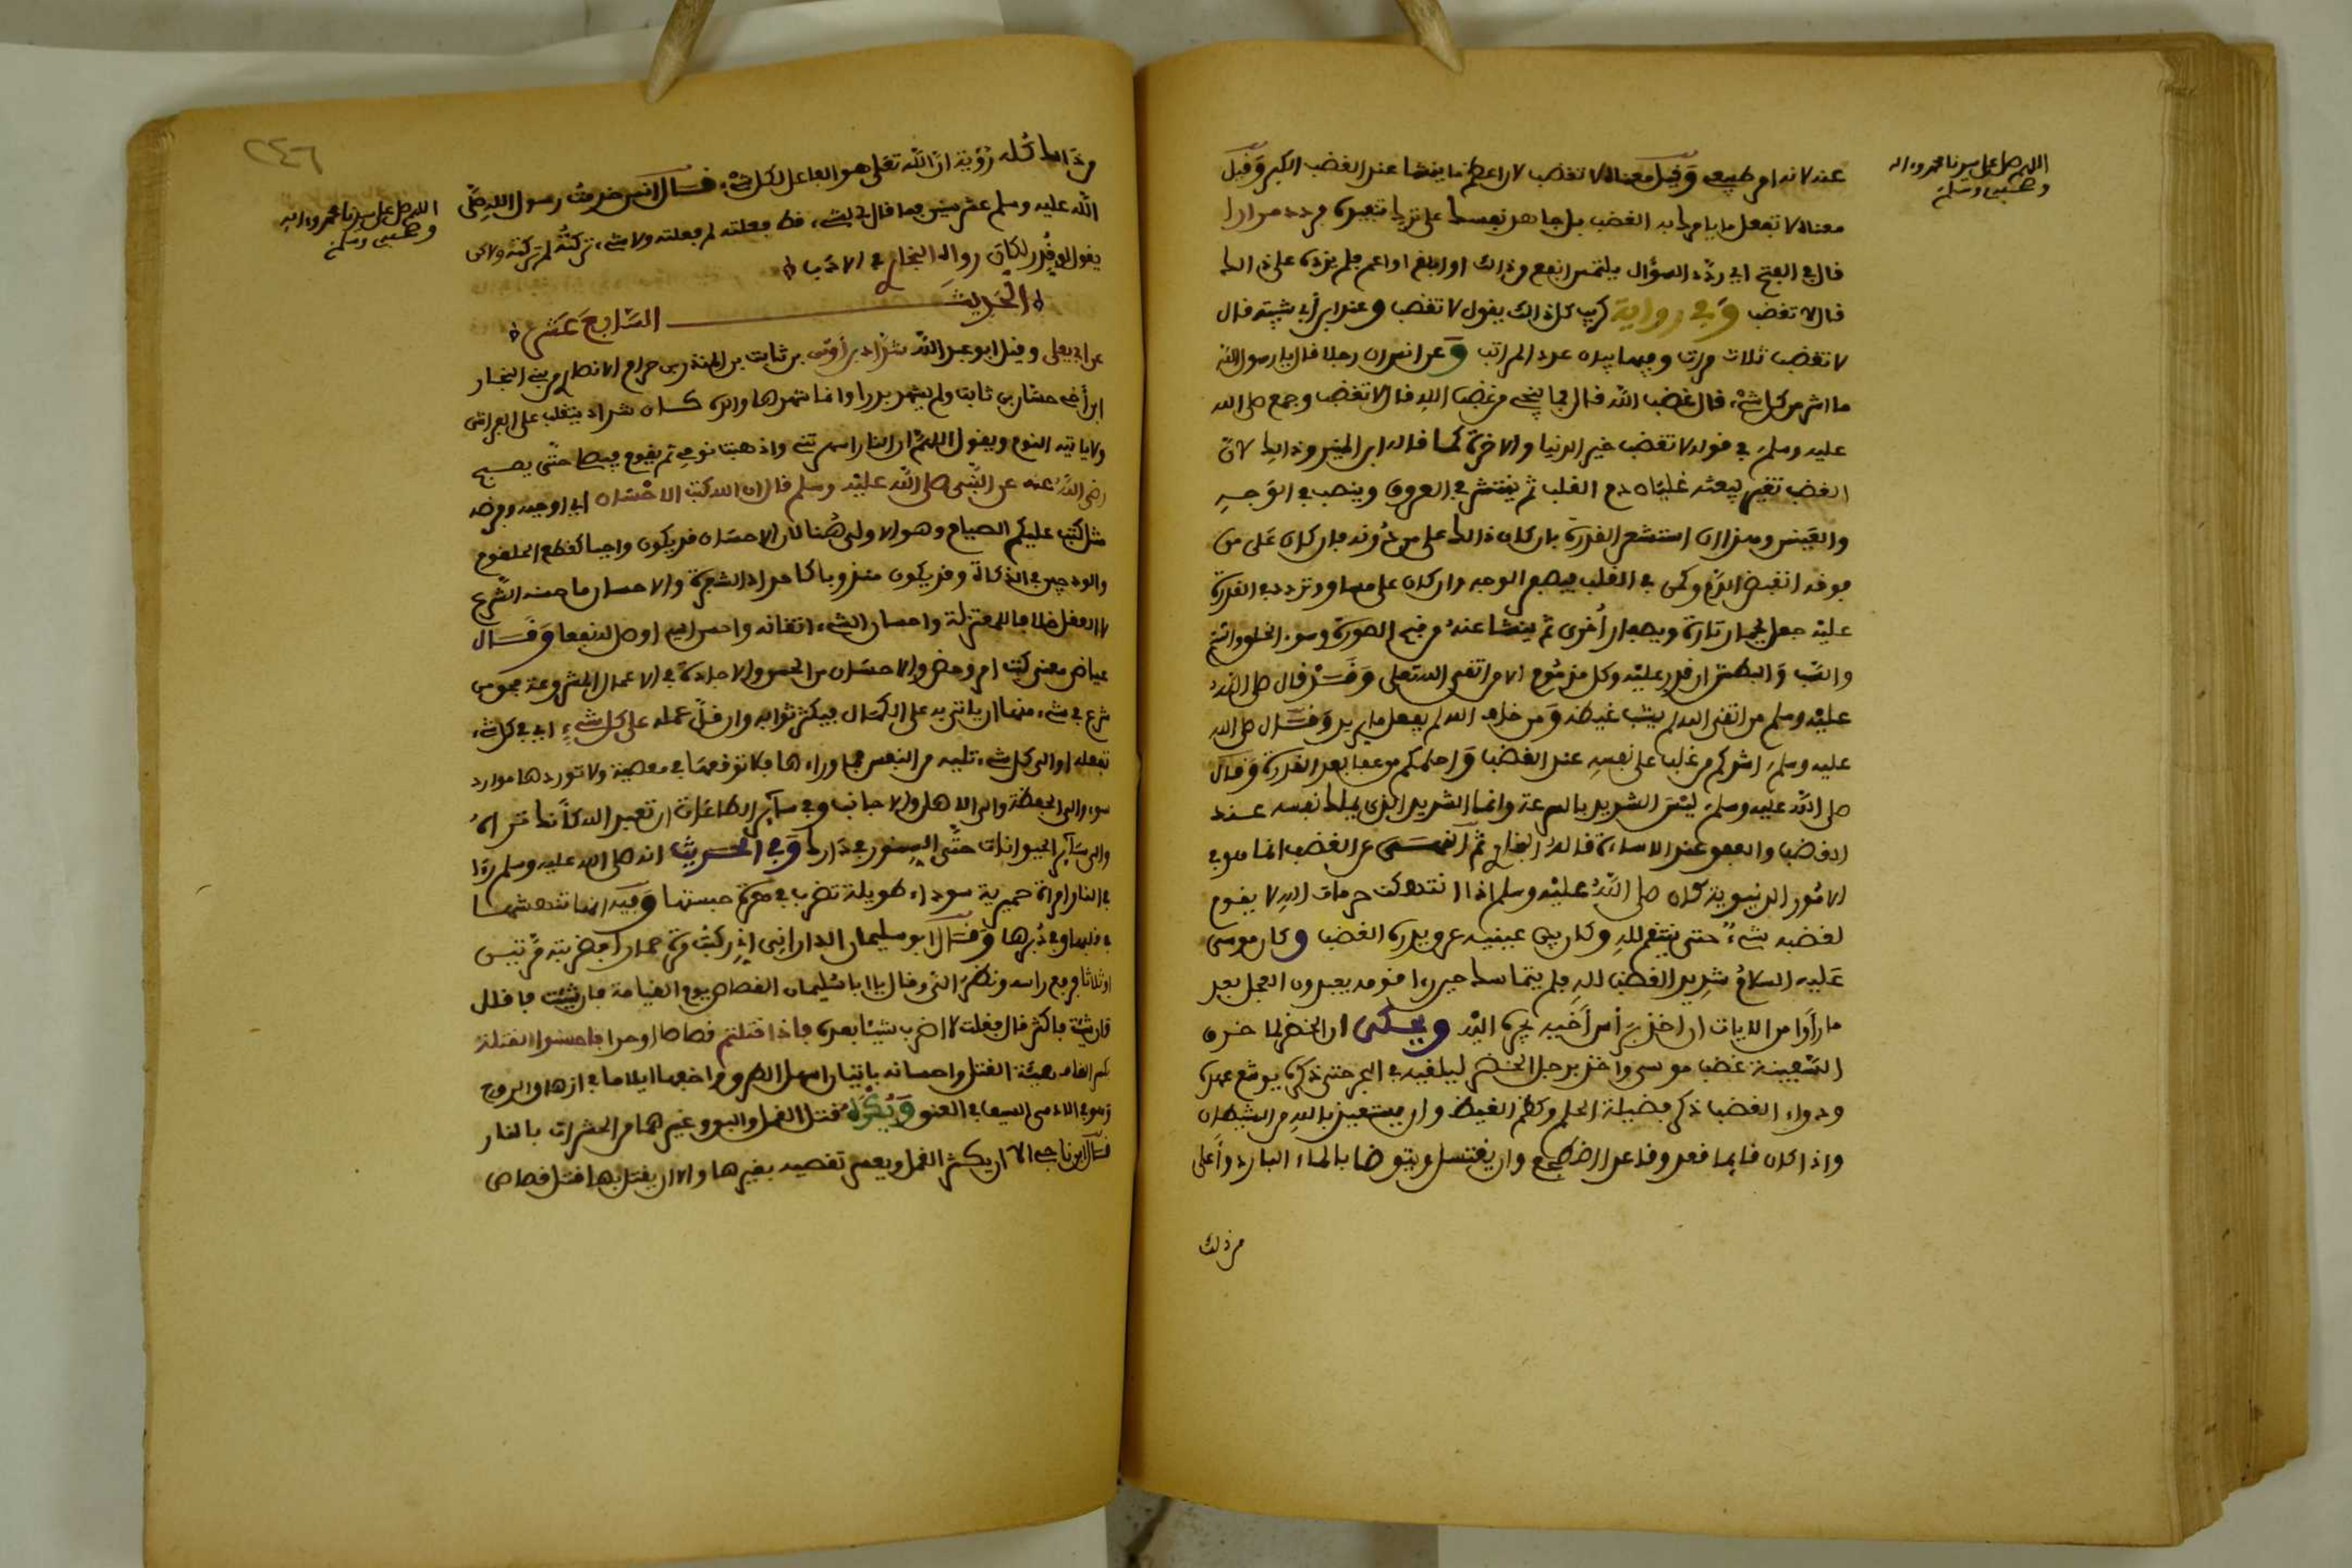 اللهم صل على سيدنا محمد وءاله
وصحبه وسلم
عنه لانه امر طبيعي وقيل معناه لا تغضب لان اعظم ما ينشا عند الغضب الكبر وقيل
معناه لا تفعل ما يامرك به الغضب بل جاهد نفسك على ترك تنفيذه فردد مرارا
قال في الفتح اي ردد السؤال يلتمس انفع من ذلك او ابلغ او اعم فلم يزده على ذالك
قال لا تغضب وفي رواية كريب كل ذالك يقول لا تغضب وعند ابن أبي شيبة قال
لا تغضب ثلاث مرات وفيها بيان عدد المراتب وعن انس ان رجلا قال يا رسول الله
ما اشد من كل شيء قال غضب الله قال فما ينجي من غضب الله قال لا تغضب وجمع صلى الله
عليه وسلم في قوله لا تغضب خير الدنيا والاخرة كما قاله ابن المنير وذالك لان
الغضب تغير يبعثه غليان دم القلب ثم ينتشر في العروق وينصب في الوجه
والعينين وهذا ان استشعر القدرة بان كان ذالك على من دونه فان كان على من
فوقه انقبض الدم وكمن في القلب فيصفر الوجه وان كان على مساو وتردد في القدرة
عليه جعل يحمار تارة ويصفار أخرى ثم ينشا عنه من قبح الصورة وسوء الخلق والشتم
والسب والبطش ان قدر عليه وكل مذموم الا من اتقى الله تعلى وقد قال صلى الله
عليه وسلم من اتقى الله لم يشف غيظه ومن خاف الله لم يفعل ما يريد وقال صلى الله
عليه وسلم اشدكم من غلب على نفسه عند الغضب واحلمكم من عفا بعد القدرة وقال
صلى الله عليه وسلم ليس الشديد بالسرعة وانما الشديد الذي يملك نفسه عند
الغضب والعفو عند الاساءة ثم النهي عن الغضب انما هو في
الامور الدنيوية كان صلى الله عليه وسلم اذا انتهكت حرمات الله لا يقوم
لغضبه شيء حتى ينتقم لله وكان بين عينيه عرق يدره الغضب وكان موسى
عليه السلام شديد الغضب لله فلم يتمالك حين رءا قومه يعبدون العجل بعد
ما رأوا من الايات ان اخذ برأس أخيه يجره اليه ويحكى ان الخضر لما خرق
السفينة غضب موسى واخذ برجل الخضر ليلقيه في البحر حتى ذكره يوشع عهده
ودواء الغضب ذكر فضيلة الحلم وكظم الغيظ وان يستعيذ بالله من الشيطان
واذا كان قايما قعد وقاعدا اضطجع وان يغتسل ويتوضا بالماء البارد وأعلى
من ذلك
٢٤٦
اللهم صل على سيدنا محمد وءاله
وصحبه وسلم
من ذالك كله رؤية ان الله تعلى هو الفاعل لكل شيء قال انس خدمت رسول الله صلى
الله عليه وسلم عشر سنين فما قال لي لشيء قط فعلته لم فعلته ولا شيء تركته لم تركته ولاكن
يقول لو قدر لكان رواه البخاري في الادب
الحديث السابع عشر
عن ابي يعلى وقيل ابو عبد الله شداد بن أوس بن ثابت بن المنذر بن حرام الانصاري من بني النجار
ابن أخي حسان بن ثابت ولم يشهد بدرا وانما شهدها والده كان شداد يتقلب على الفراش
ولا ياتيه النوم ويقول اللهم ان النار اسهرتني واذهبت نومي ثم يقوم فيصلي حتى يصبح
رضي الله عنه عن النبي صلى الله عليه وسلم قال ان الله كتب الاحسان اي اوجبه وفرضه
مثل كتب عليكم الصيام وهو الاولى هنا لان الاحسان قد يكون واجبا كقطع الحلقوم
والودجين في الذكاة وقد يكون مندوبا كاحداد الشفرة والاحسان ما حسنه الشرع
لا العقل خلافا للمعتزلة واحسان الشيء اتقانه واحسن اليه اوصل له نفعا وقال
عياض معنى كتب امر وحض والاحسان من الحسن والاجادة في الاعمال المشروعة فحق من
شرع في شيء منها ان ياتي به على الكمال فيكثر ثوابه وان قل عمله على كل شيء اي في كل شيء
تفعله او الى كل شيء تليه من النفس فما وراءها فلا توقعها في معصية ولا توردها موارد
سوء والى الحفظة والى الاهل والاجانب وفي سائر الطاعات ان تعبد الله كأنك تراه
والى سائر الحيوانات حتى السنور في دارك وفي الحديث انه صلى الله عليه وسلم رءا
في النار امراة حميرية سوداء طويلة تضرب في هرة حبستها وفيه انها تنهشها
في قبلها وفي دبرها وقال ابو سليمان الداراني ركبت مرة حمارا فضربته مرتين
او ثلاثا فرفع راسه ونظر الي وقال يا ابا سليمان القصاص يوم القيامة فان شئت فاقلل
وان شئت فاكثر قال فقلت لا اضرب شيئا بعده فاذا قتلتم قصاصا او حدا فاحسنوا القتلة
بكسر القاف هيئة القتل واحسانه باختيار اسهل الطرق واخفها ايلاما في ازهاق الروح
وهو في الادمي السيف في العنق ويكره قتل القمل والبق وغيرهما من الحشرات بالنار
قال ابن ناجي الا ان يكثر القمل ويعسر تقصيه بغيرها والا ان يقتل بها فتل قصاص